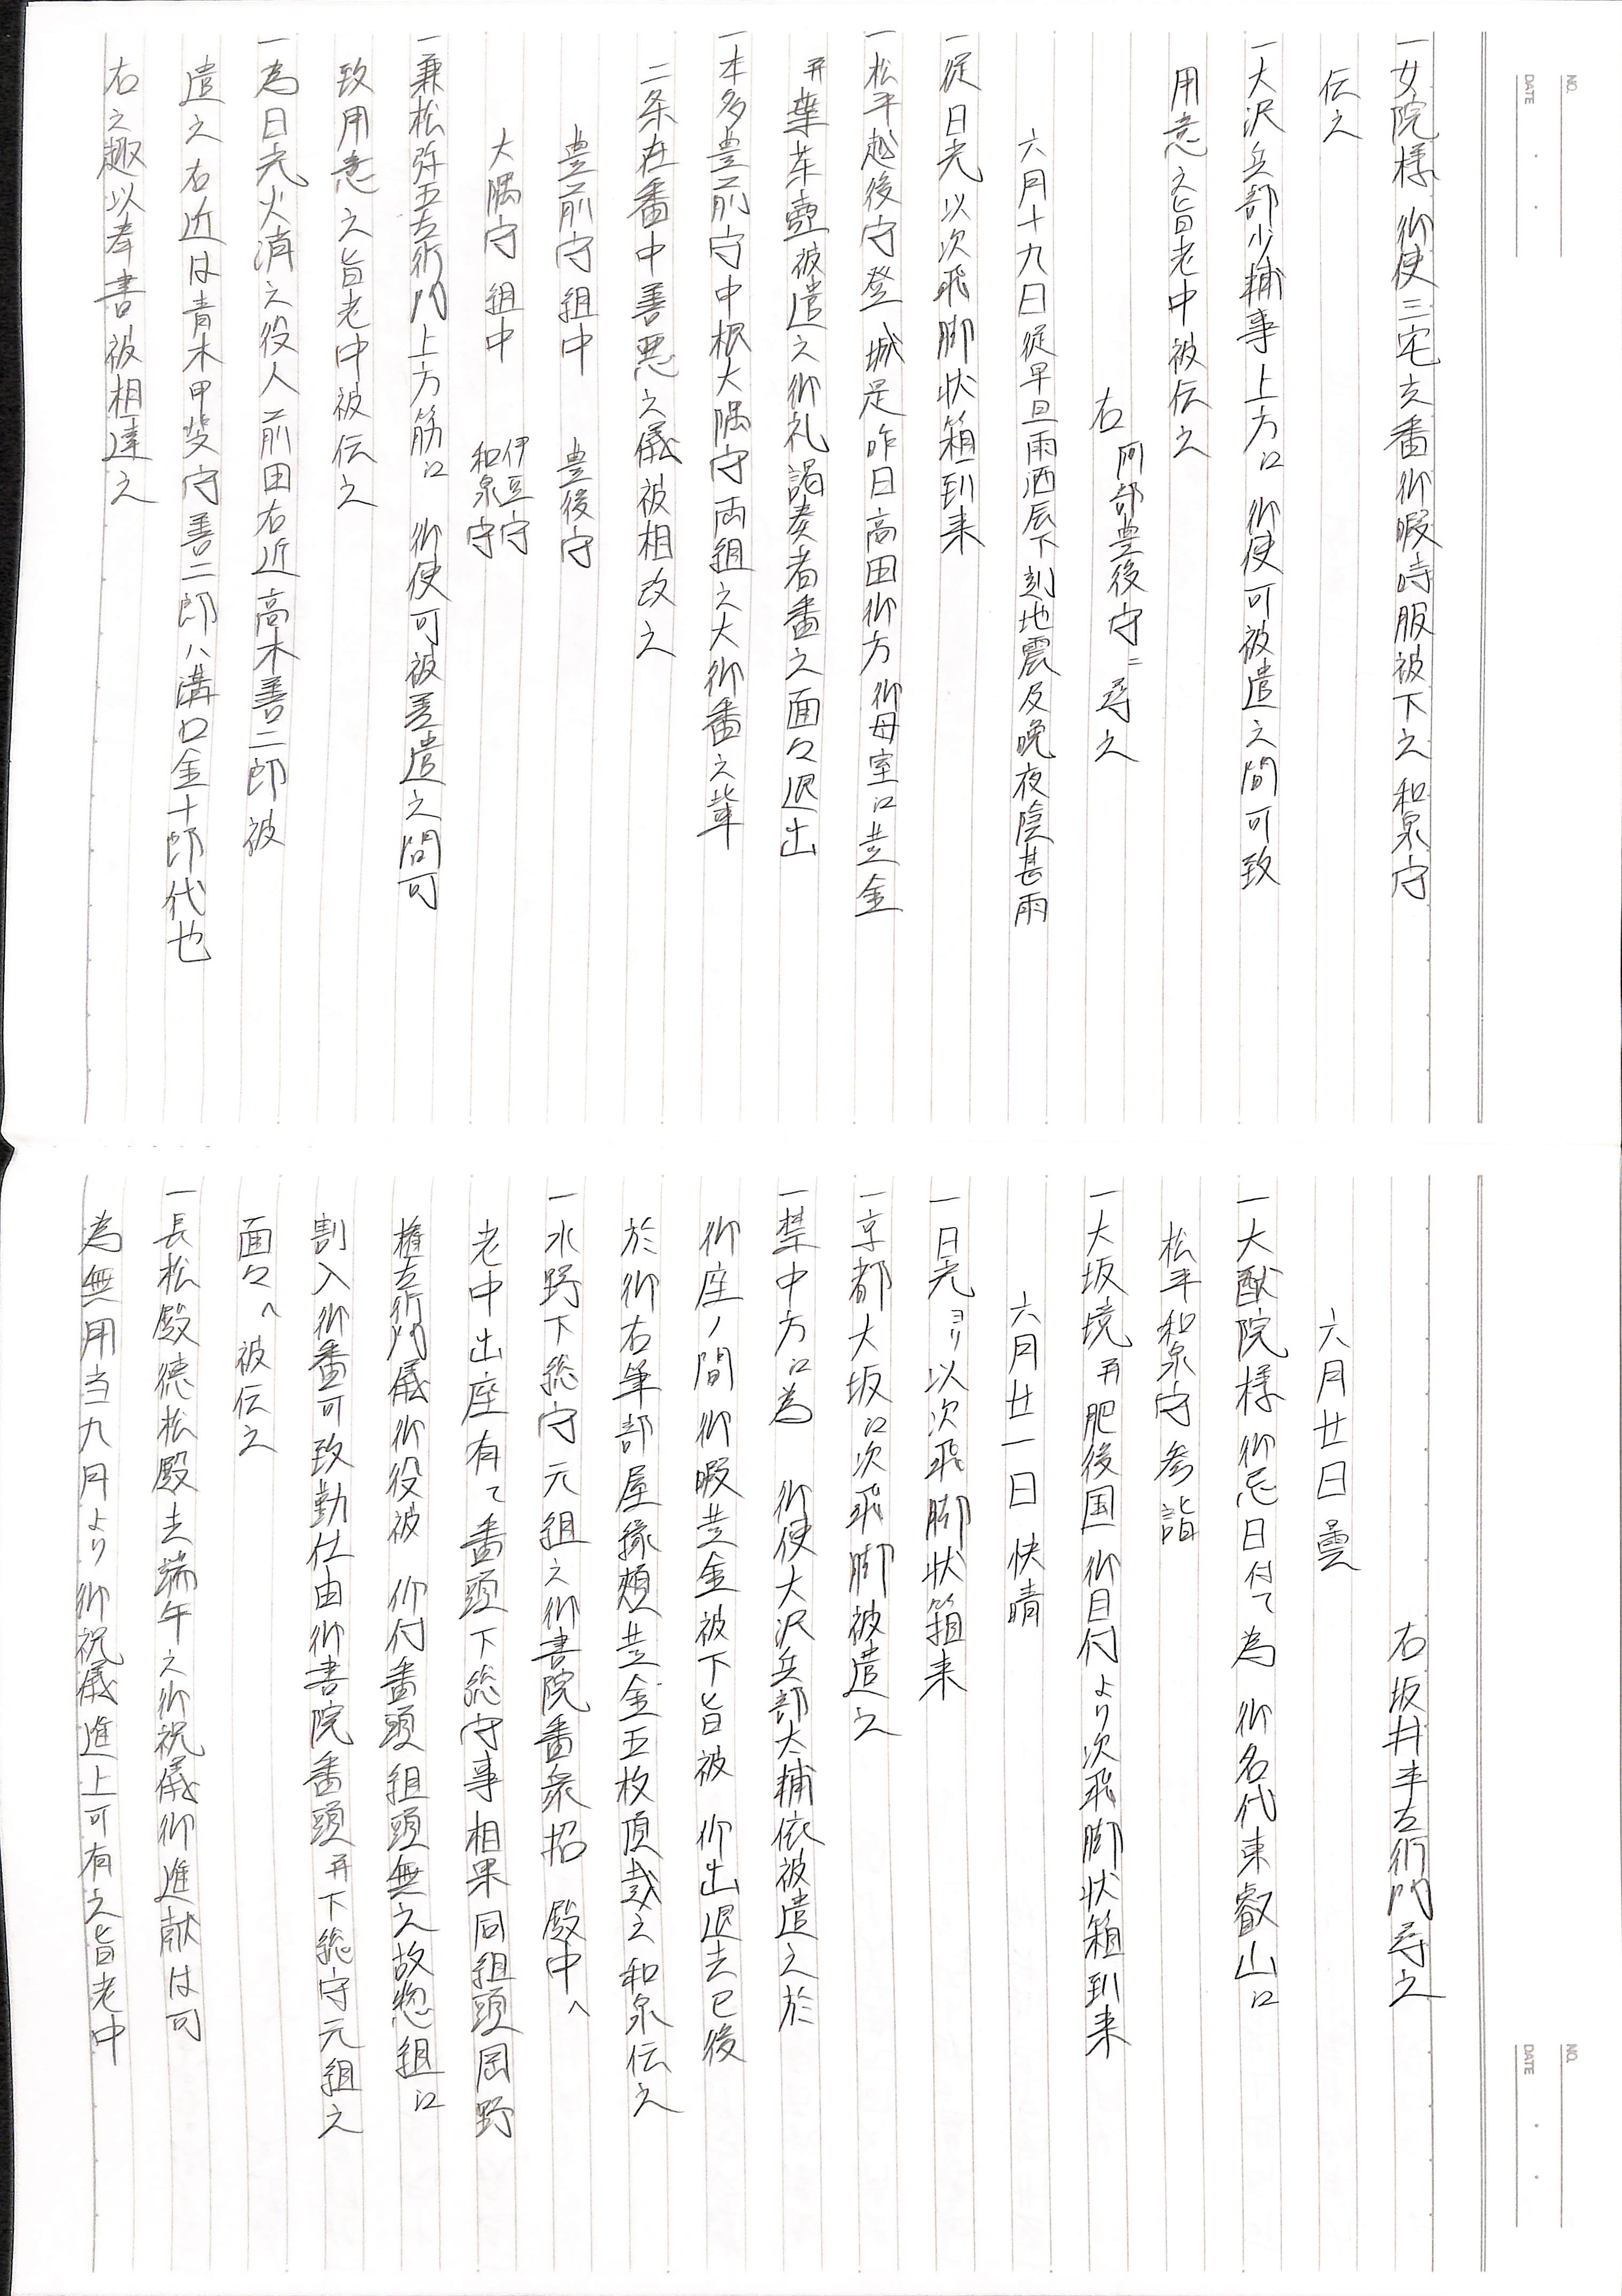 一女院様 御使三宅玄番御暇時服被下之 和泉守
伝之
一大沢兵部少輔事上方江 御使可被遣之間可致
用意之旨老中被伝之
右 阿部豊後守ニ尋之
六月十九日従早旦雨洒辰下刻地震及晩夜陰甚雨
一従日光以次飛脚状箱到来
一松平越後守登 城是昨日高田御方御母室江黄金
并葉茶壺被遣之御礼謁奏者番之面々退出
一本多豊前守中根大隅守両組之大御番之輩
二条在番中善悪之儀被相改之
豊前守組中 豊後守
大隅守 組中 伊豆守
和泉守
一兼松弥五左衛門上方筋江 御使可被差遣之間可
致用意之旨老中被伝之
一為日光火消之役人前田右近高木善二郎被
遣之右近は青木甲斐守善二郎ハ溝口金十郎代也
右之趣以奉書被相達之
右坂井半左衛門尋之
六月廿日 曇
一大猷院様御忌日付て為 御名代東叡山江
松平和泉守参詣
一大坂境并肥後国 御目付より次飛脚状箱到来
六月廿一日 快晴
一日光ヨリ以次飛脚状箱来
一京都大坂江次飛脚被遣之
一禁中方江為 御使大沢兵部大輔依被遣之於
御座ノ間御暇黄金被下旨被 仰出退去已後
於御右筆部屋縁頬黄金五枚頂戴之和泉伝之
一水野下総守元組之御書院番衆招 殿中へ
老中出座有て番頭下総守事相果同組頭岡野
権左衛門儀御役被 仰付番頭組頭無之故惣組江
割入御番可致勤仕由御書院番頭并下総守元組之
面々へ被伝之
一長松殿徳松殿去端午之御祝儀御進献は可
為無用当九月より御祝儀進上可有之旨老中
NO.
DATE
NO.
DATE